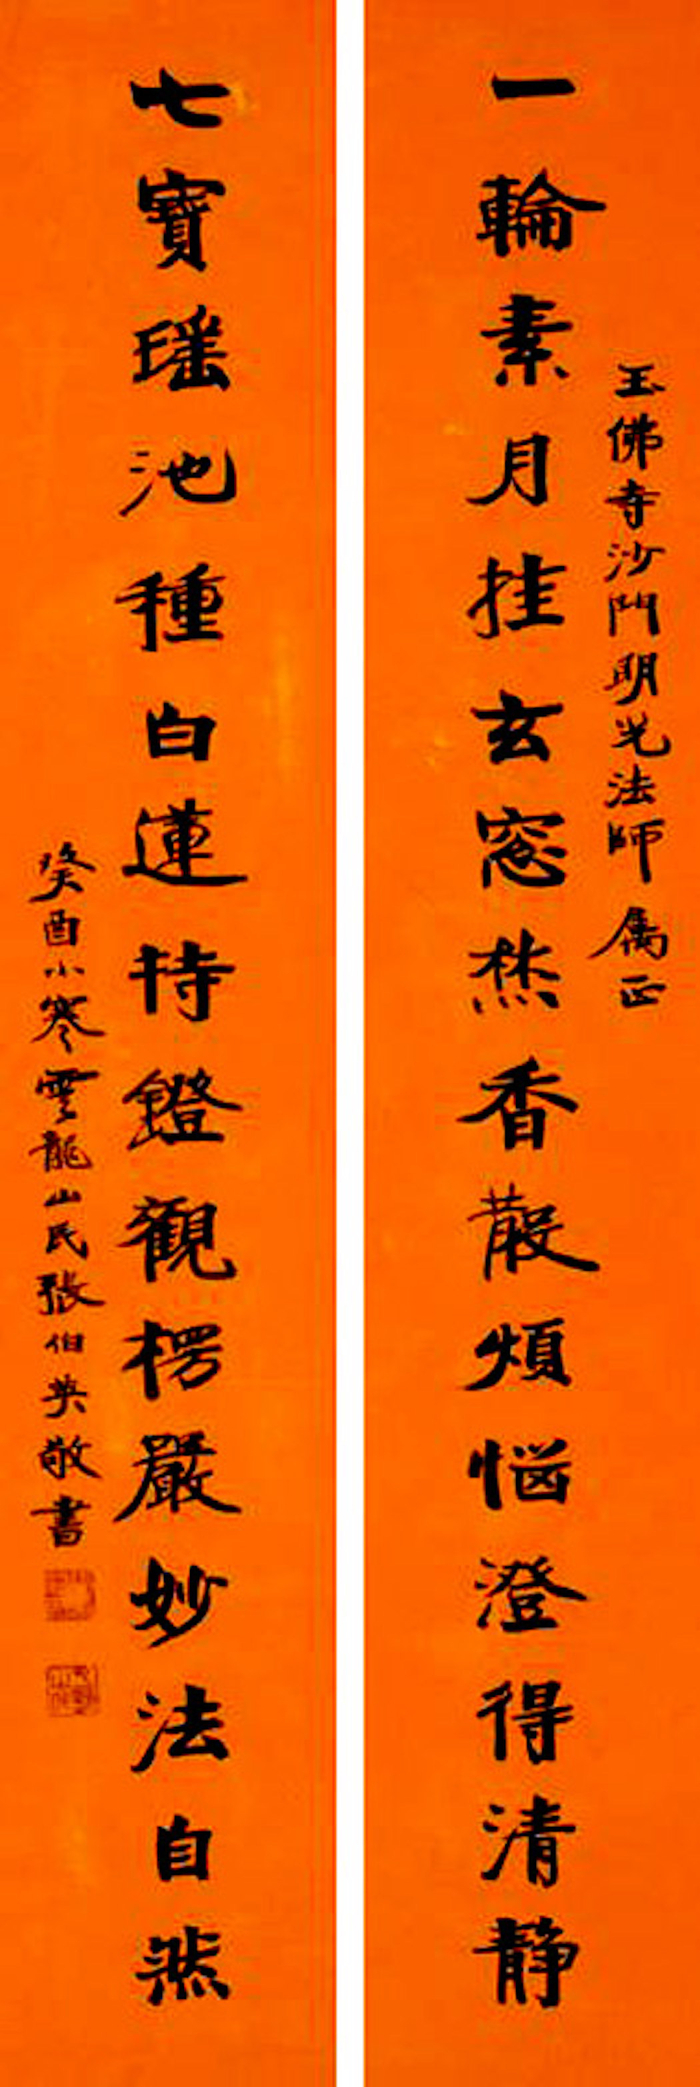 玉佛寺沙門明光法師屬正
一輪素月挂玄窓焚香散煩惱澄得清靜
七寶瑶池種白蓮持鐙觀楞嚴妙法自然
癸酉小寒雲龍山民張伯英敬書